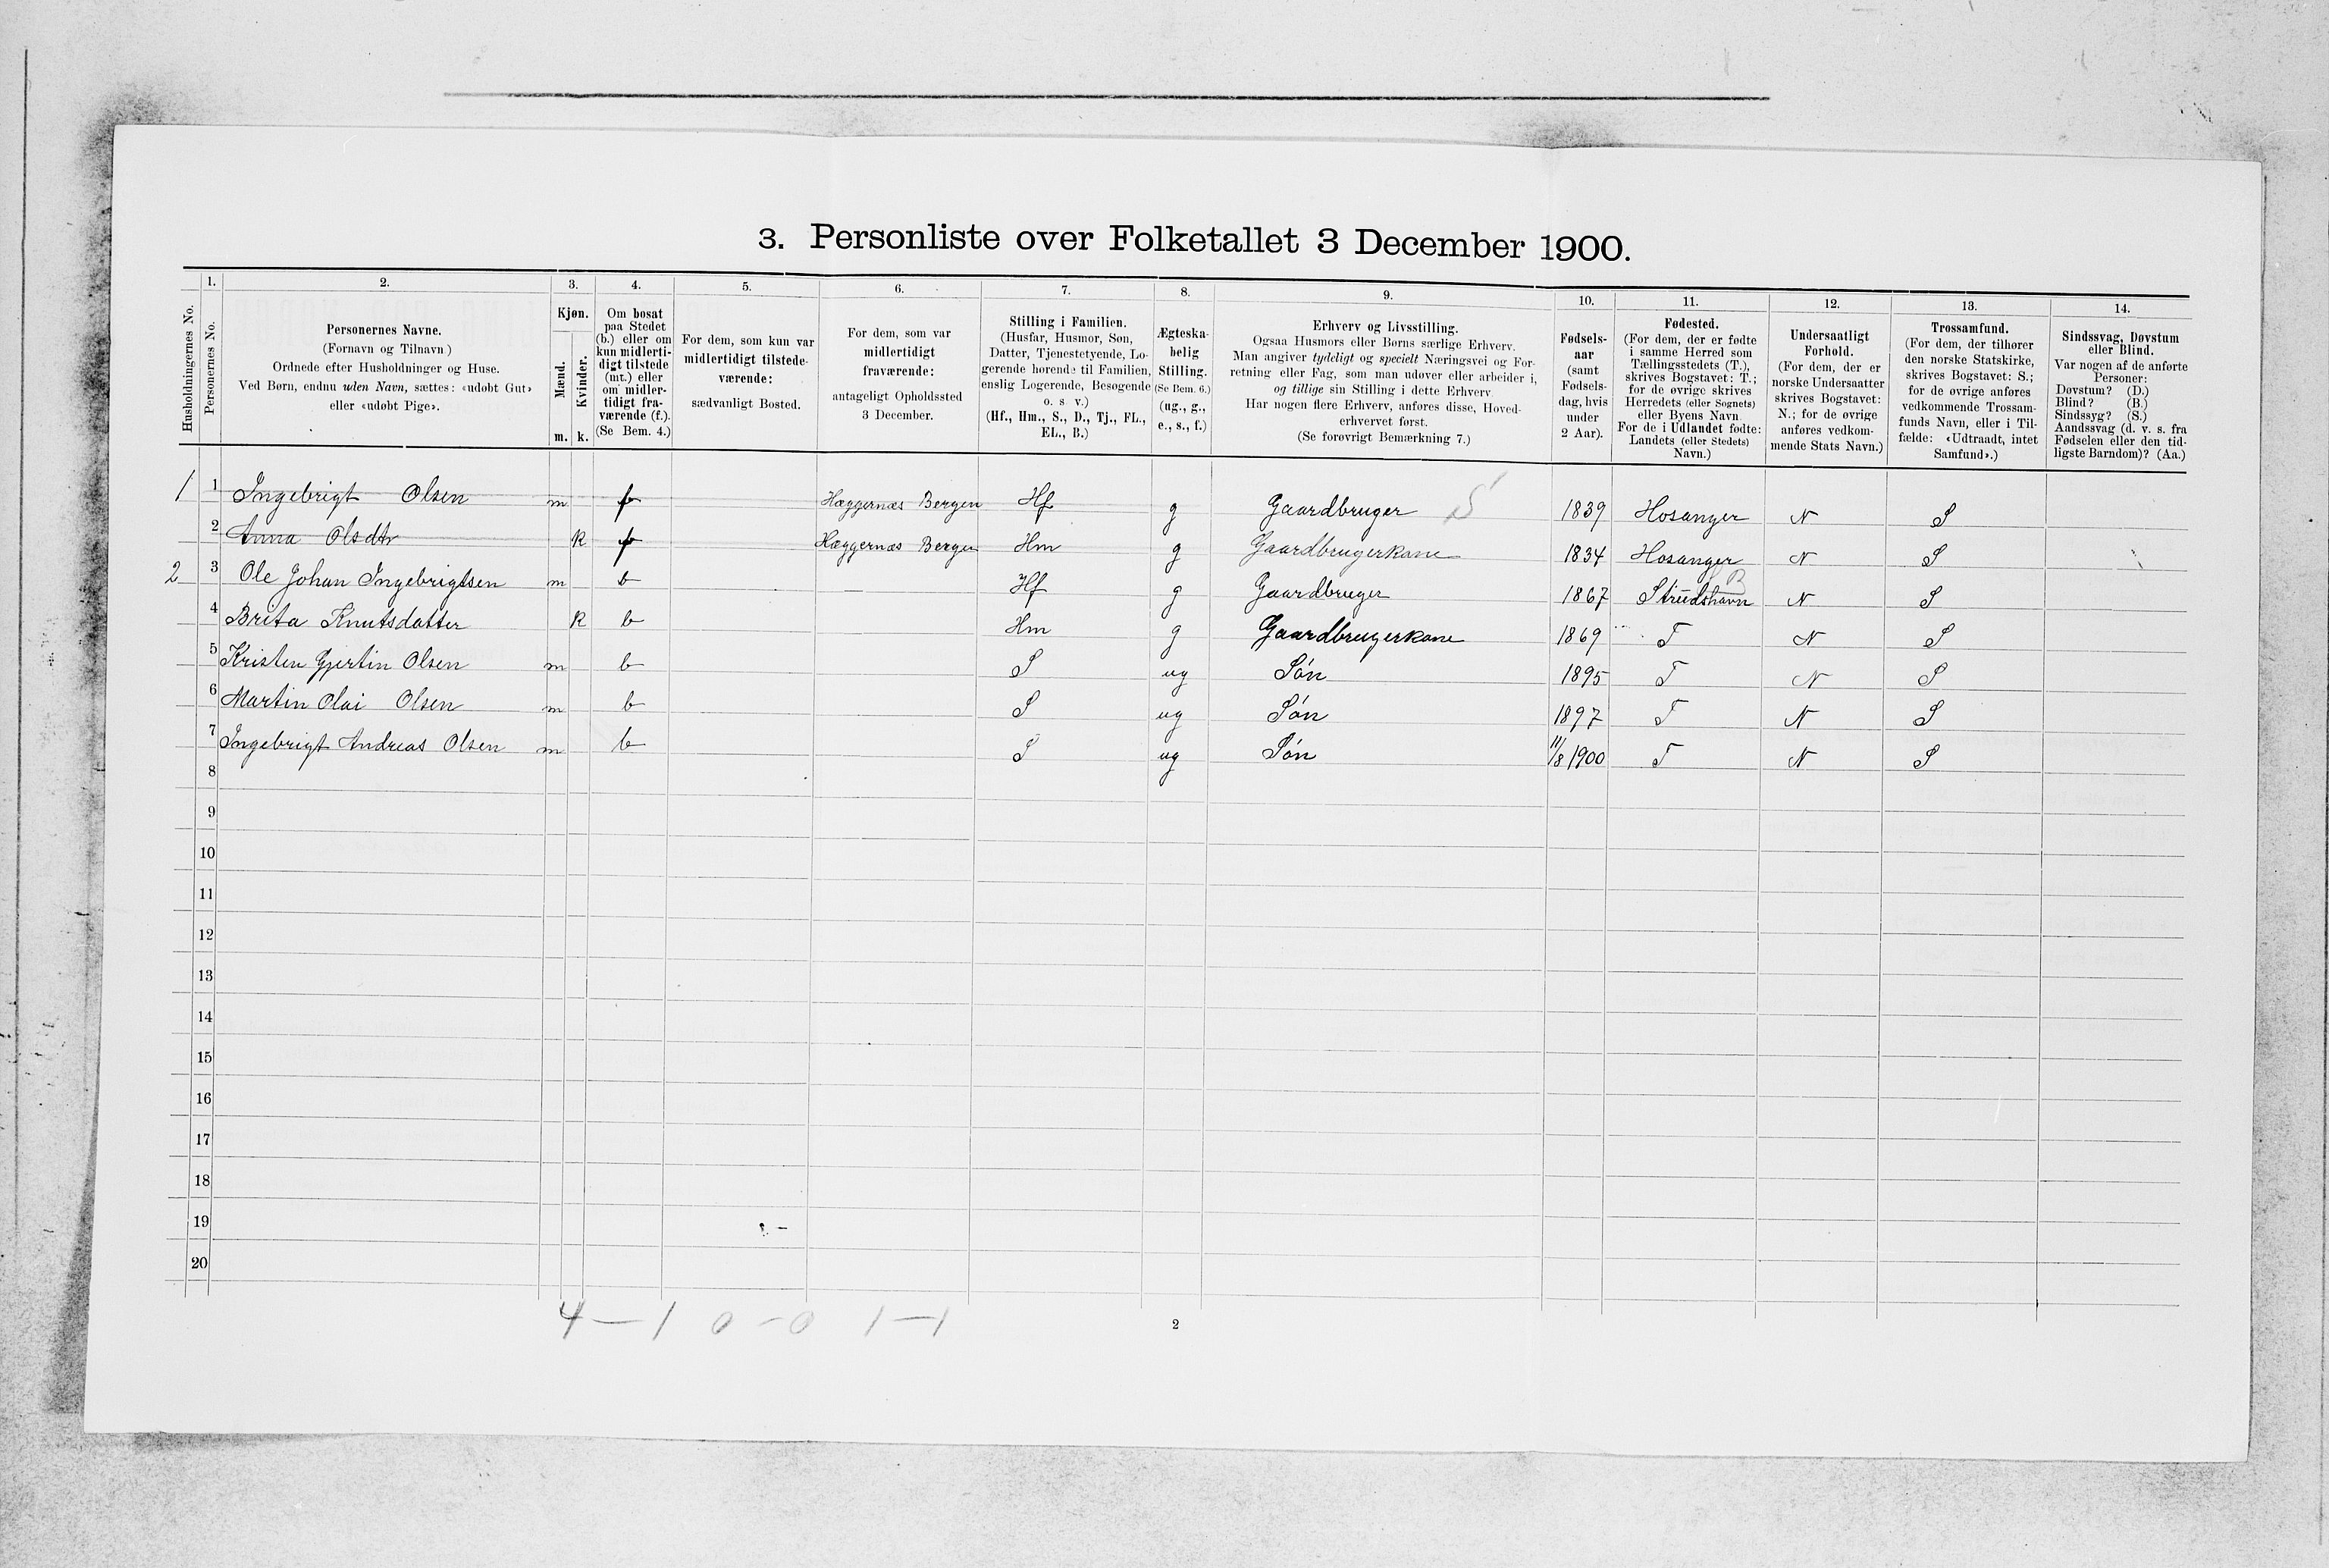 3. Personliste over Folketallet 3 December 1900.
Husholdningernes No.
1.
Personernes No.
2.
Personernes Navne.
(Fornavn og Tilnavn.)
Ordnede efter Husholdninger og Huse.
Ved Børn, endnu uden Navn, sættes: «udøbt Gut»
eller «udøbt Pige».
3.
Kjøn.
Mænd.
m.
Kvinder.
k.
4.
Om bosat
paa Stedet
(b.) eller om
kun midlerti-
digt tilstede
(mt.) eller
om midler-
tidigt fra-
værende (f.).
(Se Bem. 4.)
5.
For dem, som kun var
midlertidigt tilstede-
værende:
sædvanligt Bosted.
6.
For dem, som var
midlertidigt
fraværende:
antageligt Opholdssted
3 December.
7.
Stilling i Familien.
(Husfar, Husmor, Søn,
Datter, Tjenestetyende, Lo-
gerende hørende til Familien,
enslig Logerende, Besøgende
o. s. v.)
(Hf., Hm., S., D., Tj., FL.,
EL., B.)
8.
Ægteska-
belig
Stilling.
(Se Bem. 6.)
(ug., g.,
e., s., f.)
9.
Erhverv og Livsstilling.
Ogsaa Husmors eller Børns særlige Erhverv.
Man angiver tydeligt og specielt Næringsvei og For-
retning eller Fag, som man udøver eller arbeider i,
og tillige sin Stilling i dette Erhverv.
Har nogen flere Erhverv, anføres disse, Hoved-
erhvervet først.
(Se forøvrigt Bemærkning 7.)
10.
Fødsels-
aar
(samt
Fødsels-
dag, hvis
under
2 Aar).
11.
Fødested.
(For dem, der er fødte
i samme Herred som
Tællingsstedets (T.),
skrives Bogstavet: T.;
for de øvrige skrives
Herredets (eller Sognets)
eller Byens Navn.
For de i Udlandet fødte:
Landets (eller Stedets)
Navn.)
12.
Undersaatligt
Forhold.
(For dem, der er
norske Undersaatter
skrives Bogstavet:
N.; for de øvrige
anføres vedkom-
mende Stats Navn.)
13.
Trossamfund.
(For dem, der tilhører
den norske Statskirke,
skrives Bogstavet: S.;
for de øvrige anføres
vedkommende Trossam-
funds Navn, eller i Til-
fælde: «Udtraadt, intet
Samfund».)
14.
Sindssvag, Døvstum
eller Blind.
Var nogen af de anførte
Personer:
Døvstum? (D.)
Blind? (B.)
Sindssyg? (S.)
Aandssvag (d. v. s. fra
Fødselen eller den tid-
ligste Barndom)? (Aa.)
1 1 Ingebrigt Olsen m f Hæggernæs Bergen Hf g Gaardbruger S 1839 Hosanger N S
2 Anna Olsdtr k f Hæggernæs Bergen Hm g Gaardbrugerkone 1834 Hosanger N S
2 3 Ole Johan Ingebrigtsen m b Hf g Gaardbruger 1867 Struds­havn B N S
4 Brita Knutsdatter k b Hm g Gaardbrugerkone 1869 T N S
5 Kristen Gjertin Olsen m b S ug Søn 1895 T N S
6 Martin Olai Olsen m b S ug Søn 1897 T N S
7 Ingebrigt Andreas Olsen m b S ug Søn 11/8 1900 T N S
8
9
10
11
12
13
14
15
16
17
18
19
20
4–1 0–0 1–1
2